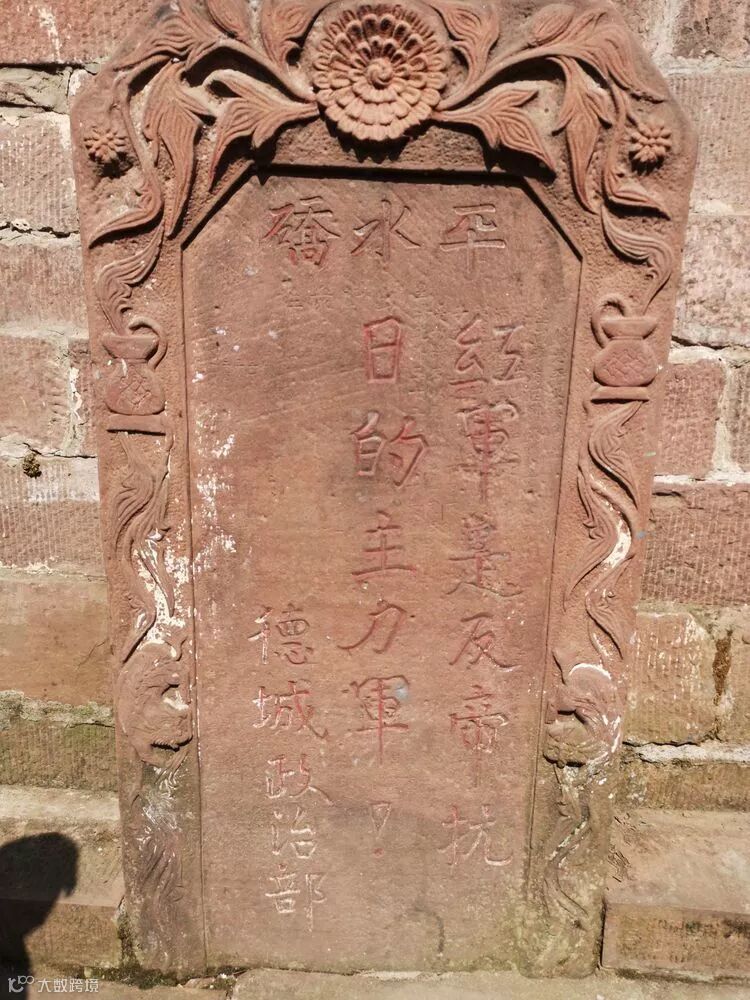 平水礄
紅軍是反帝抗
日的主力軍！
德城政治部
大数跨境